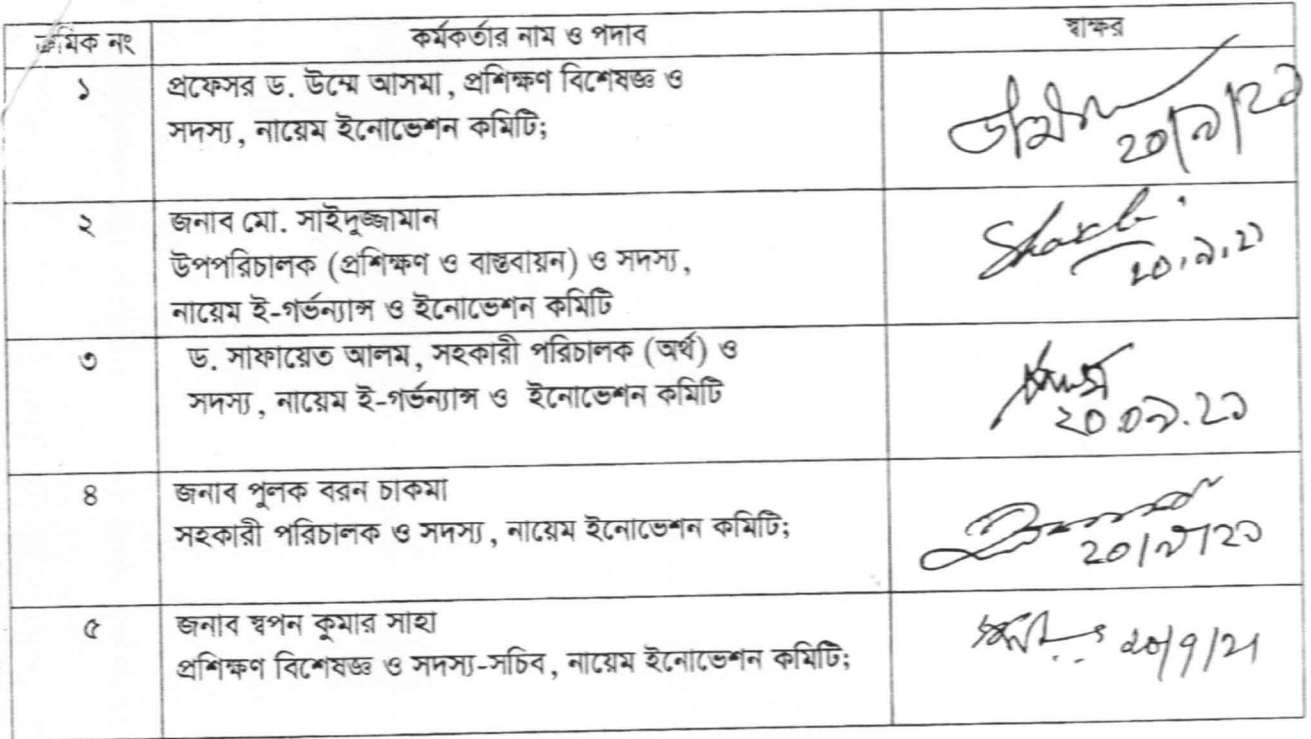 ক্রমিক নং কর্মকর্তার নাম ও পদাব স্বাক্ষর
১ প্রফেসর ড. উম্মে আসমা, প্রশিক্ষণ বিশেষজ্ঞ ও
সদস্য, নায়েম ইনোভেশন কমিটি;
২০/৯/২১
২ জনাব মো. সাইদুজ্জামান
উপপরিচালক (প্রশিক্ষণ ও বাস্তবায়ন) ও সদস্য,
২০.৯.২১
নায়েম ই-গর্ভন্যান্স ও ইনোভেশন কমিটি
৩ ড. সাফায়েত আলম, সহকারী পরিচালক (অর্থ) ও
সদস্য, নায়েম ই-গর্ভন্যান্স ও ইনোভেশন কমিটি
২০.০৯.২১
৪ জনাব পুলক বরন চাকমা
সহকারী পরিচালক ও সদস্য, নায়েম ইনোভেশন কমিটি;
২০/৯/২১
৫ জনাব স্বপন কুমার সাহা
20/9/21
প্রশিক্ষণ বিশেষজ্ঞ ও সদস্য-সচিব, নায়েম ইনোভেশন কমিটি;